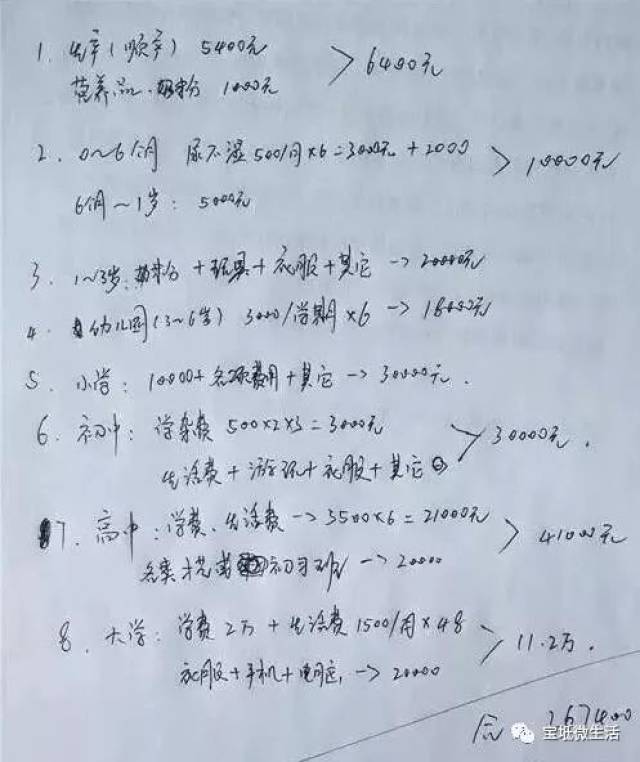 1. 生产(顺产) 5400元 > 6400元
营养品、奶粉 1000元
2. 0~6个月 尿不湿 500/月×6=3000元+2000 > 10000元
6个月~1岁: 5000元
3. 1~3岁: 奶粉+玩具+衣服+其它 → 20000元
4. 幼儿园(3~6岁) 3000/学期×6 → 18000元
5. 小学: 10000+各项费用+其它 → 30000元.
6. 初中: 学杂费 500×2×3=3000元 > 30000元.
生活费+游玩+衣服+其它
7. 高中: 学费、生活费 → 3500×6=21000元 > 41000元
各类才艺或补习班 → 20000
8. 大学: 学费2万+生活费1500/月×48 > 11.2万.
衣服+手机+电脑 → 20000
267400
宝坻微生活